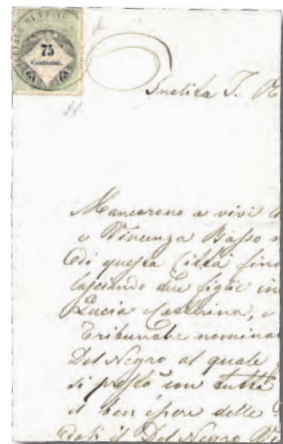 75
Inclita I. R
Mancarono a vivi
e Vincenza Basso
di questa Città fino
lasciando due figlie in
Lucia Catterina, e
Tribunale nominar
Del Negro al quale
si prestò con tutta
il ben essere delle
Del Negro